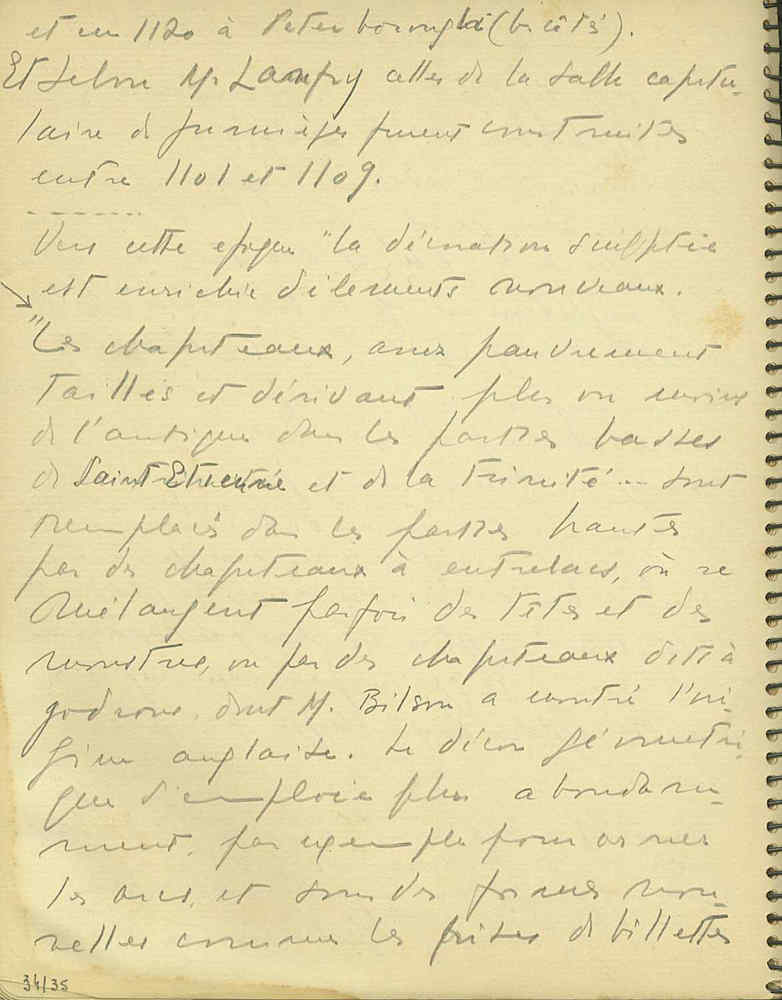 et en 1120 à Peterborough (bas côtés).
Et selon M. Lanfry celles de la salle capitu-
laire de Jumièges furent construites
entre 1101 et 1109.
Vers cette époque "la décoration sculptée
est enrichie d'éléments nouveaux.
"Les chapiteaux, assez pauvrement
taillés et dérivant plus ou moins
de l'antique dans les parties basses
de Saint Etienne et de la Trinité... sont
remplacés dans les parties hautes
par des chapiteaux à entrelacs, où se
mélangent parfois des têtes et des
monstres, ou par des chapiteaux dits à
godrons, dont M. Bilson a montré l'ori-
gine anglaise. Le décor géométri-
que s'emploie plus abondam-
ment, par exemple pour orner
les arcs, et sous des formes nou-
velles comme les frises de billettes
34/35